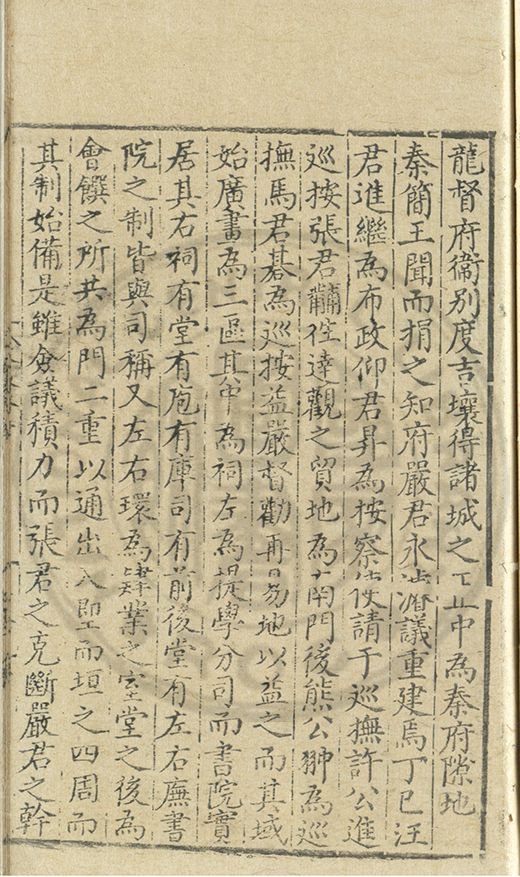 龍督府衞別度吉壤得諸城之正中為秦府隙地
秦簡王聞而捐之知府嚴君永濬議重建焉丁巳汪
君進繼為布政仰君昇為按察使請于巡撫許公進
巡按張君黼徃達觀之貿地為南門後熊公翀為巡
撫馬君棊為巡按益嚴督勸再易地以益之而其域
始廣畫為三區其中為祠左為提學分司而書院實
居其右祠有堂有庖有庫司有前後堂有左右廡書
院之制皆與司稱又左右環為肄業之室堂之後為
會饌之所共為門二重以通出入塈而垣之四周而
其制始備是雖僉議積力而張君之克斷嚴君之幹